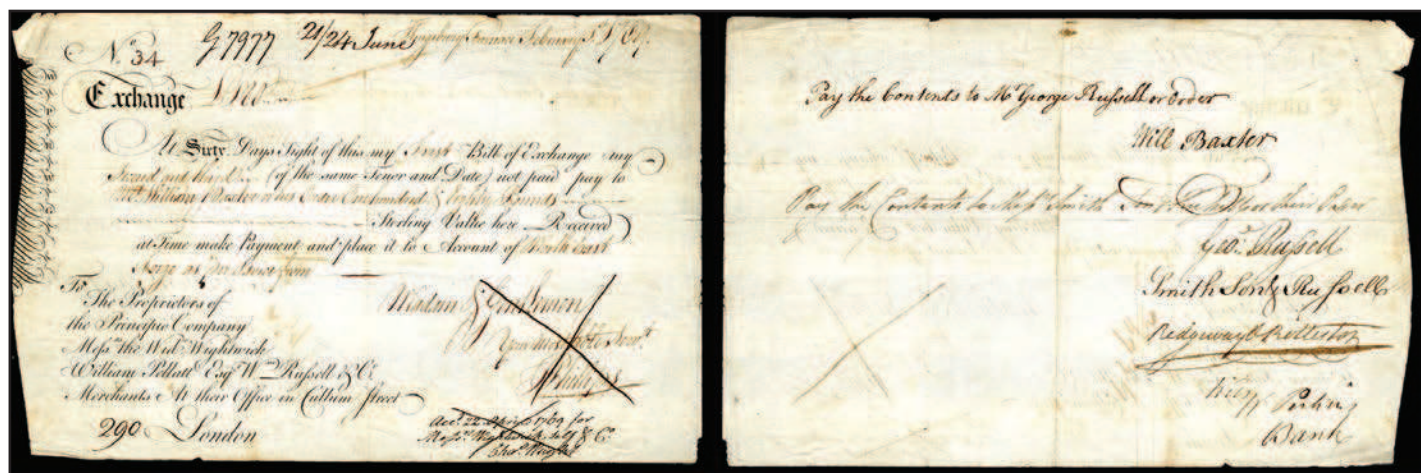 No. 34 G 7977 21/24 June Kingsbury Furnace February
Exchange
At Sixty Days Sight of this my First Bill of Exchange my
Second and third (of the same Tenor and Date) not paid pay to
Mr. William Baxter or his Order One hundred & Eighty Pounds
Sterling Value here Received
at Time make Payment and place it to Account of North East
Forge as
To
The Proprietors of
the Principio Company
Messrs. the Wid.w Wightwick
William Pellatt Esqr. Wm. Russell & Co.
Merchants At their Office in Cullum Street
290 London
Madam & Gentlemen
Your most
Accd. 22 April 1769 for
Messrs. Wightwick & Co.
Pay the Contents to Mr. George Russell or Order
Will Baxter
Pay the Contents to Messrs. Smith Son & Russell or their Order
Geo. Russell
Smith Son & Russell
Ridgway & Rolleston
Bank